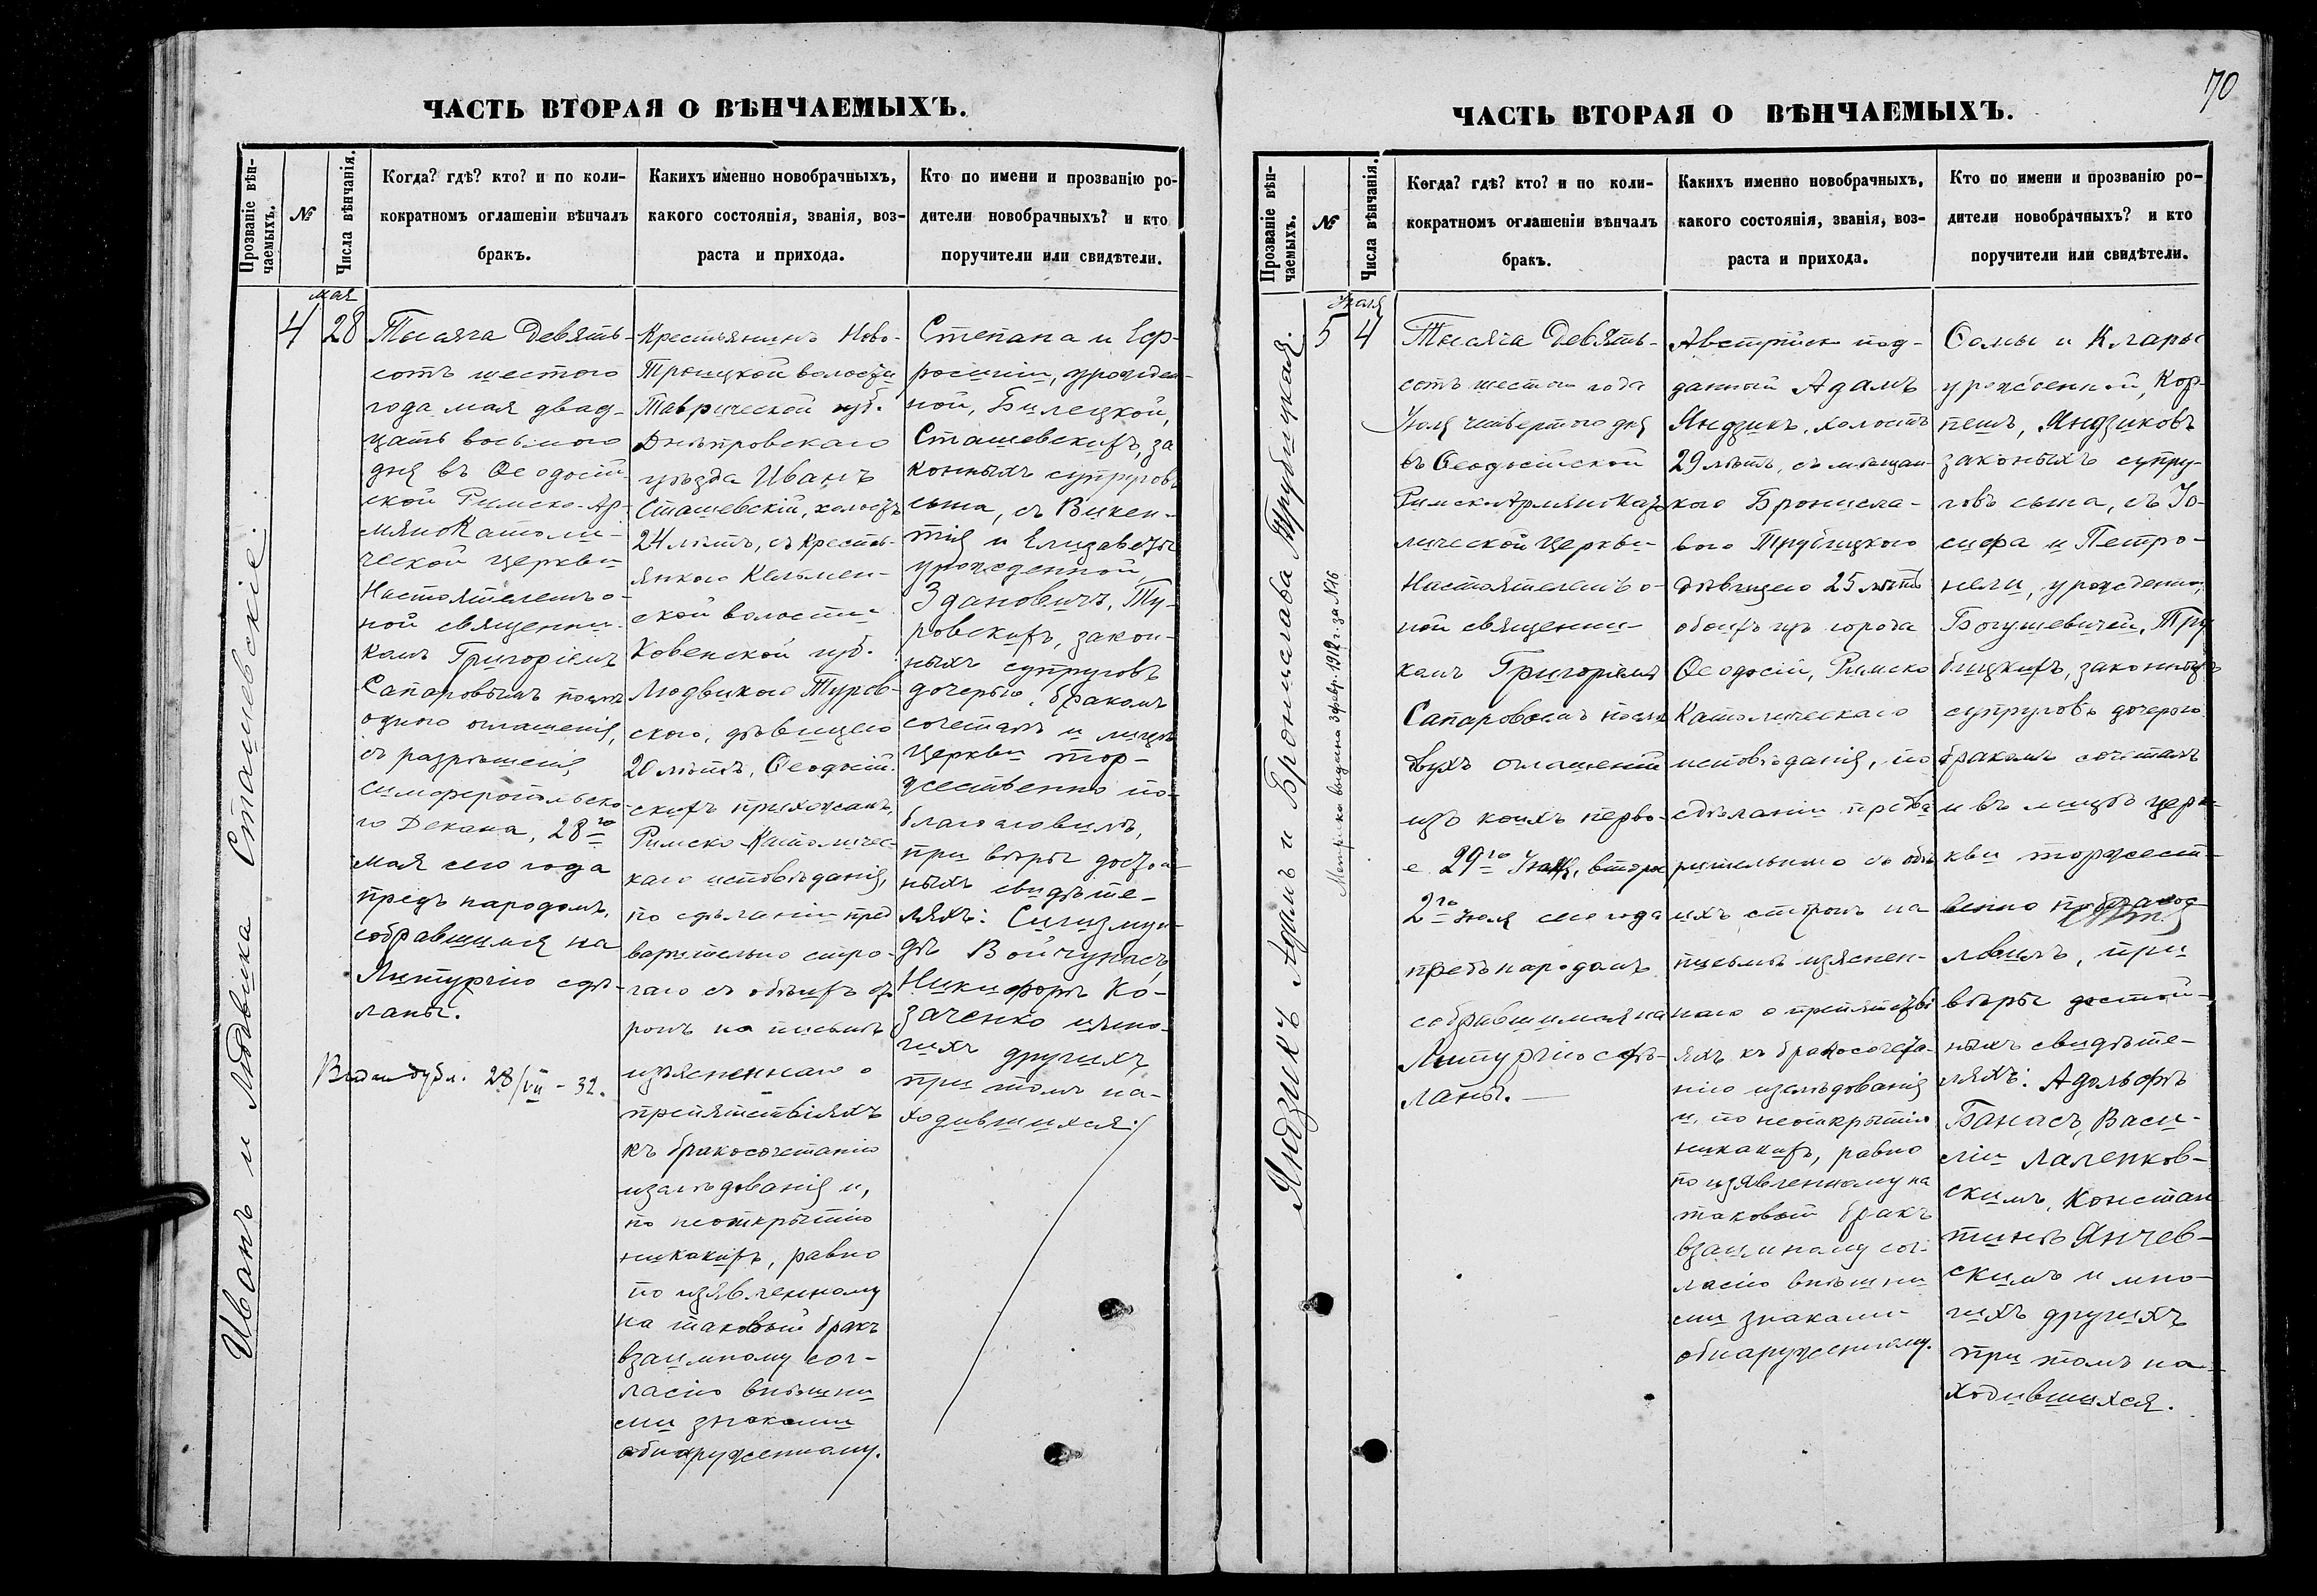 70
ЧАСТЬ ВТОРАЯ О ВѢНЧАЕМЫХЪ.
Прозваніе вѣн-
чаемыхъ.
№
Числа вѣнчанія.
Когда? гдѣ? кто? и по коли-
кократномъ оглашеніи вѣнчалъ
бракъ.
Какихъ именно новобрачныхъ,
какого состоянія, званія, воз-
раста и прихода.
Кто по имени и прозванію ро-
дители новобрачныхъ? и кто
поручители или свидѣтели.
Иванъ и Людвика Сташевскіе.
4
мая
28
Тысяча девять-
сотъ шестого
года мая двад-
цать восьмого
дня въ Ѳеодосій-
ской Римско-Ар-
мяно Католи-
ческой церкви
Настоятелемъ о-
ной священни-
комъ Григоріемъ
Сапаровымъ послѣ
одного оглашенія,
съ разрѣшенія
Симферопольска-
го Декана, 28го
мая сего года
предъ народомъ,
собравшимся на
Литургію сдѣ-
ланы.
Выдан дубл. 28/VII - 32.
Крестьянинъ Ново-
Троицкой волости
Таврической губ.
Днѣпровскаго
уѣзда Иванъ
Сташевскій, холостъ
24 лѣтъ, съ кресть-
янкою Кельмен-
ской волости
Ковенской губ.
Людвикою Туров-
скою, дѣвицею
20 лѣтъ, Ѳеодосій-
скихъ прихожанъ,
Римско Католичес-
каго исповѣданія,
по сдѣланіи пред
варительно стро-
гаго съ обѣихъ сто
ронъ на письмѣ
изъясненнаго о
препятствіяхъ
къ бракосочетанію
изслѣдованія и,
по неоткрытію
никакихъ, равно
по изявленному
на таковый бракъ
взаимному сог-
ласію внѣшни
ми знаками
обнаруженному.
Степана и Евф-
росиніи, урожден-
ной, Билецкой,
Сташевскихъ, за
конныхъ супруговъ
сына, съ Викен-
тія и Елизаветы
урожденной
Здановичъ, Ту-
ровскихъ, закон-
ныхъ супруговъ
дочерью, бракомъ
сочеталъ и лицѣ
церкви тор-
жественно по-
благословилъ,
при вѣры достой-
ныхъ свидѣте-
ляхъ: Сигизмун-
дѣ Войчунасъ,
Никифорѣ Ко-
заченко и мно-
гихъ другихъ
при томъ на-
ходившихся.
ЧАСТЬ ВТОРАЯ О ВѢНЧАЕМЫХЪ.
Прозваніе вѣн-
чаемыхъ.
№
Числа вѣнчанія.
Когда? гдѣ? кто? и по коли-
кократномъ оглашеніи вѣнчалъ
бракъ.
Какихъ именно новобрачныхъ,
какого состоянія, званія, воз-
раста и прихода.
Кто по имени и прозванію ро-
дители новобрачныхъ? и кто
поручители или свидѣтели.
Яндзикъ Адамъ и Бронислава Трубицкая.
Метрика выдана 3 февр. 1912 г. за №16
5
Іюля
4
Тысяча девять-
сотъ шестого года
Іюля четвертого дня
въ Ѳеодосійской
Римско-Армяно Като
лической церкви
Настоятелемъ о-
ной священни-
комъ Григоріемъ
Сапаровымъ послѣ
двухъ оглашеній
изъ коихъ перво-
е 29го Іюня, второе
2го Іюля сего года
предъ народомъ
собравшимся на
Литургію сдѣ-
ланы.
Австрійск под-
данный Адамъ
Яндзикъ, холостъ
29 лѣтъ, съ мѣщан-
кою Бронисла-
вою Трубицкою
дѣвицею 25 лѣтъ
обоихъ изъ города
Ѳеодосіи, Римско
Католическаго
исповѣданія, по
сдѣланіи предва
рительнаго съ обѣ
ихъ сторонъ на
письмѣ изяснен-
наго о препятстві
яхъ къ бракосочета-
нію изслѣдованія
и, по неоткрытію
никакихъ, равно
по изявленному на
таковый бракъ
взаимному сог-
ласію внѣшни
ми знаками
обнаруженному.
Ѳомы и Клары
урожденной, Кор-
пешъ, Яндзиковъ
законныхъ супру-
говъ сына, съ Іо-
сифа и Петро-
нели, урожденно,
Богушевичей, Тру
бицкихъ, законныхъ
супруговъ дочерью
бракомъ сочеталъ
и въ лицѣ цер-
кви торжест-
венно поблагос
ловилъ, при
вѣры достой-
ныхъ свидѣте-
ляхъ: Адольфѣ
Банасъ, Васи-
ліи Маленков-
скимъ, Констан
тинѣ Янчев-
скимъ и мно-
гихъ другихъ
при томъ на-
ходившихся.